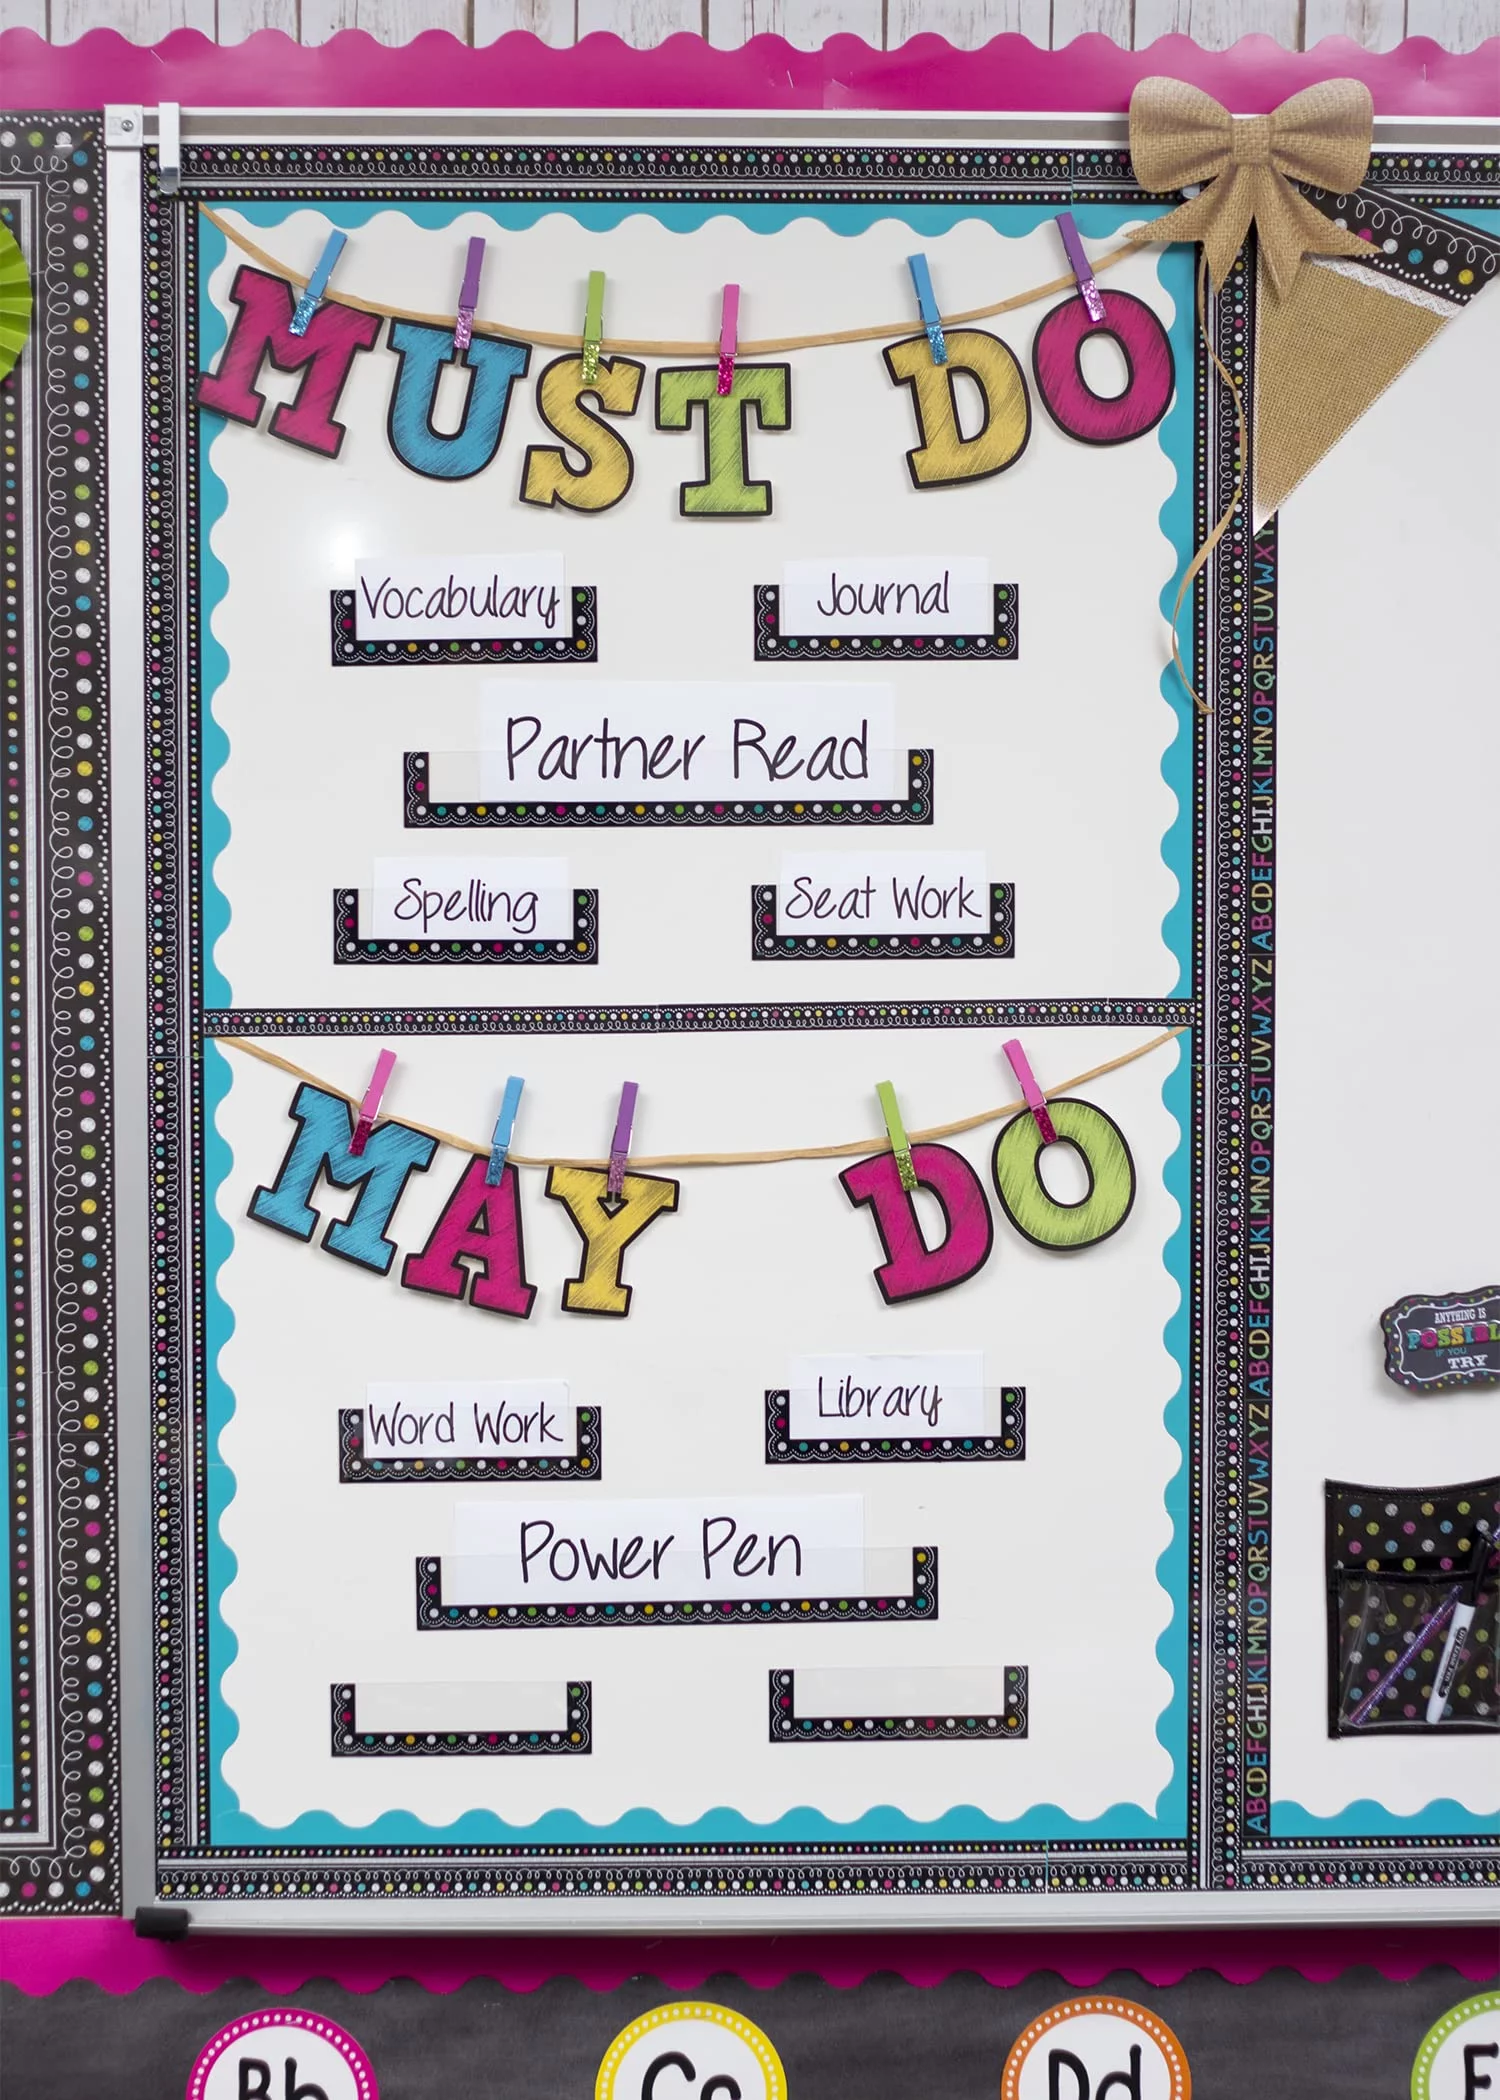 MUST DO
Vocabulary
Journal
Partner Read
Spelling
Seat Work
MAY DO
Word Work
Library
Power Pen
ANYTHING IS
POSSIBLE
IF YOU
TRY
ABCDEFGHIJKLMNOPQRSTUVWXYZ ABCDEFGHIJKLMNOPQRSTUVWXYZ ABCDEFGHIJKLMNOPQRSTUVWXY
Bb
Cc
Dd
E